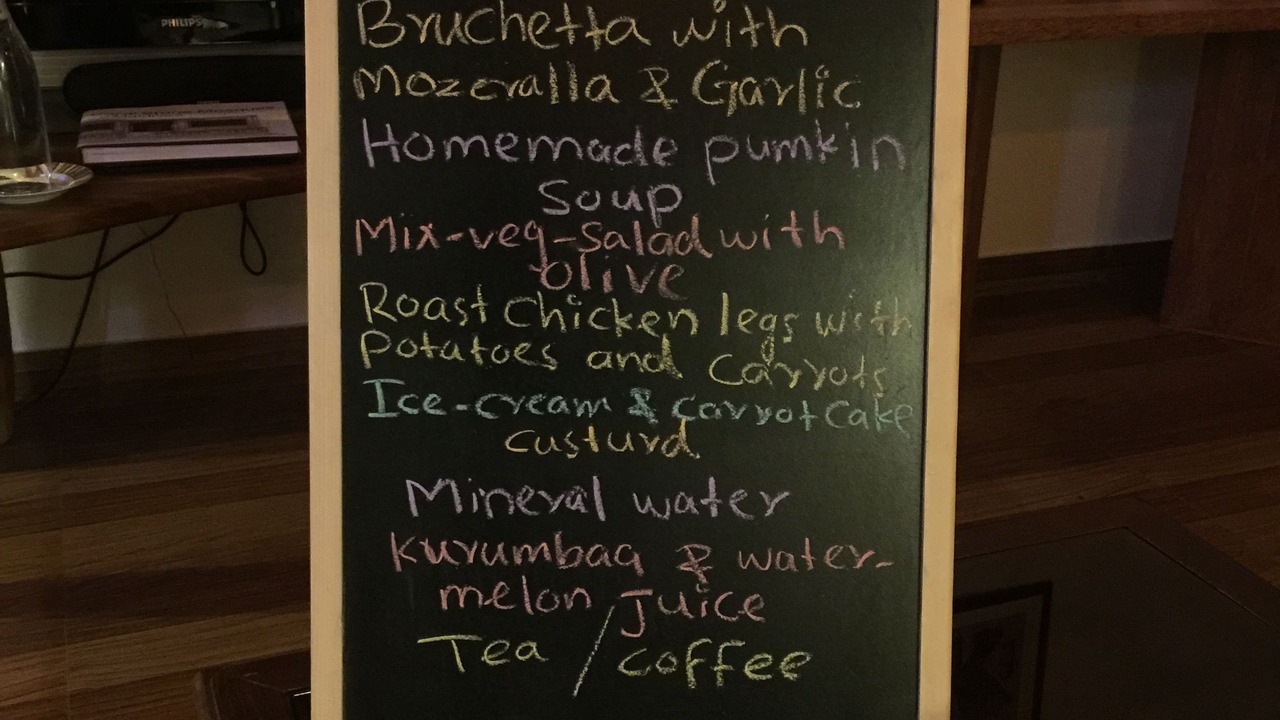 PHILIPS
Bruchetta with
Mozeralla & Garlic
Homemade pumkin
Soup
Mix-veg-salad with
olive
Roast Chicken legs with
Potatoes and Carrots
Ice-cream & Carrot Cake
custurd
Mineral water
Kurumbaa & water-
melon Juice
Tea / Coffee